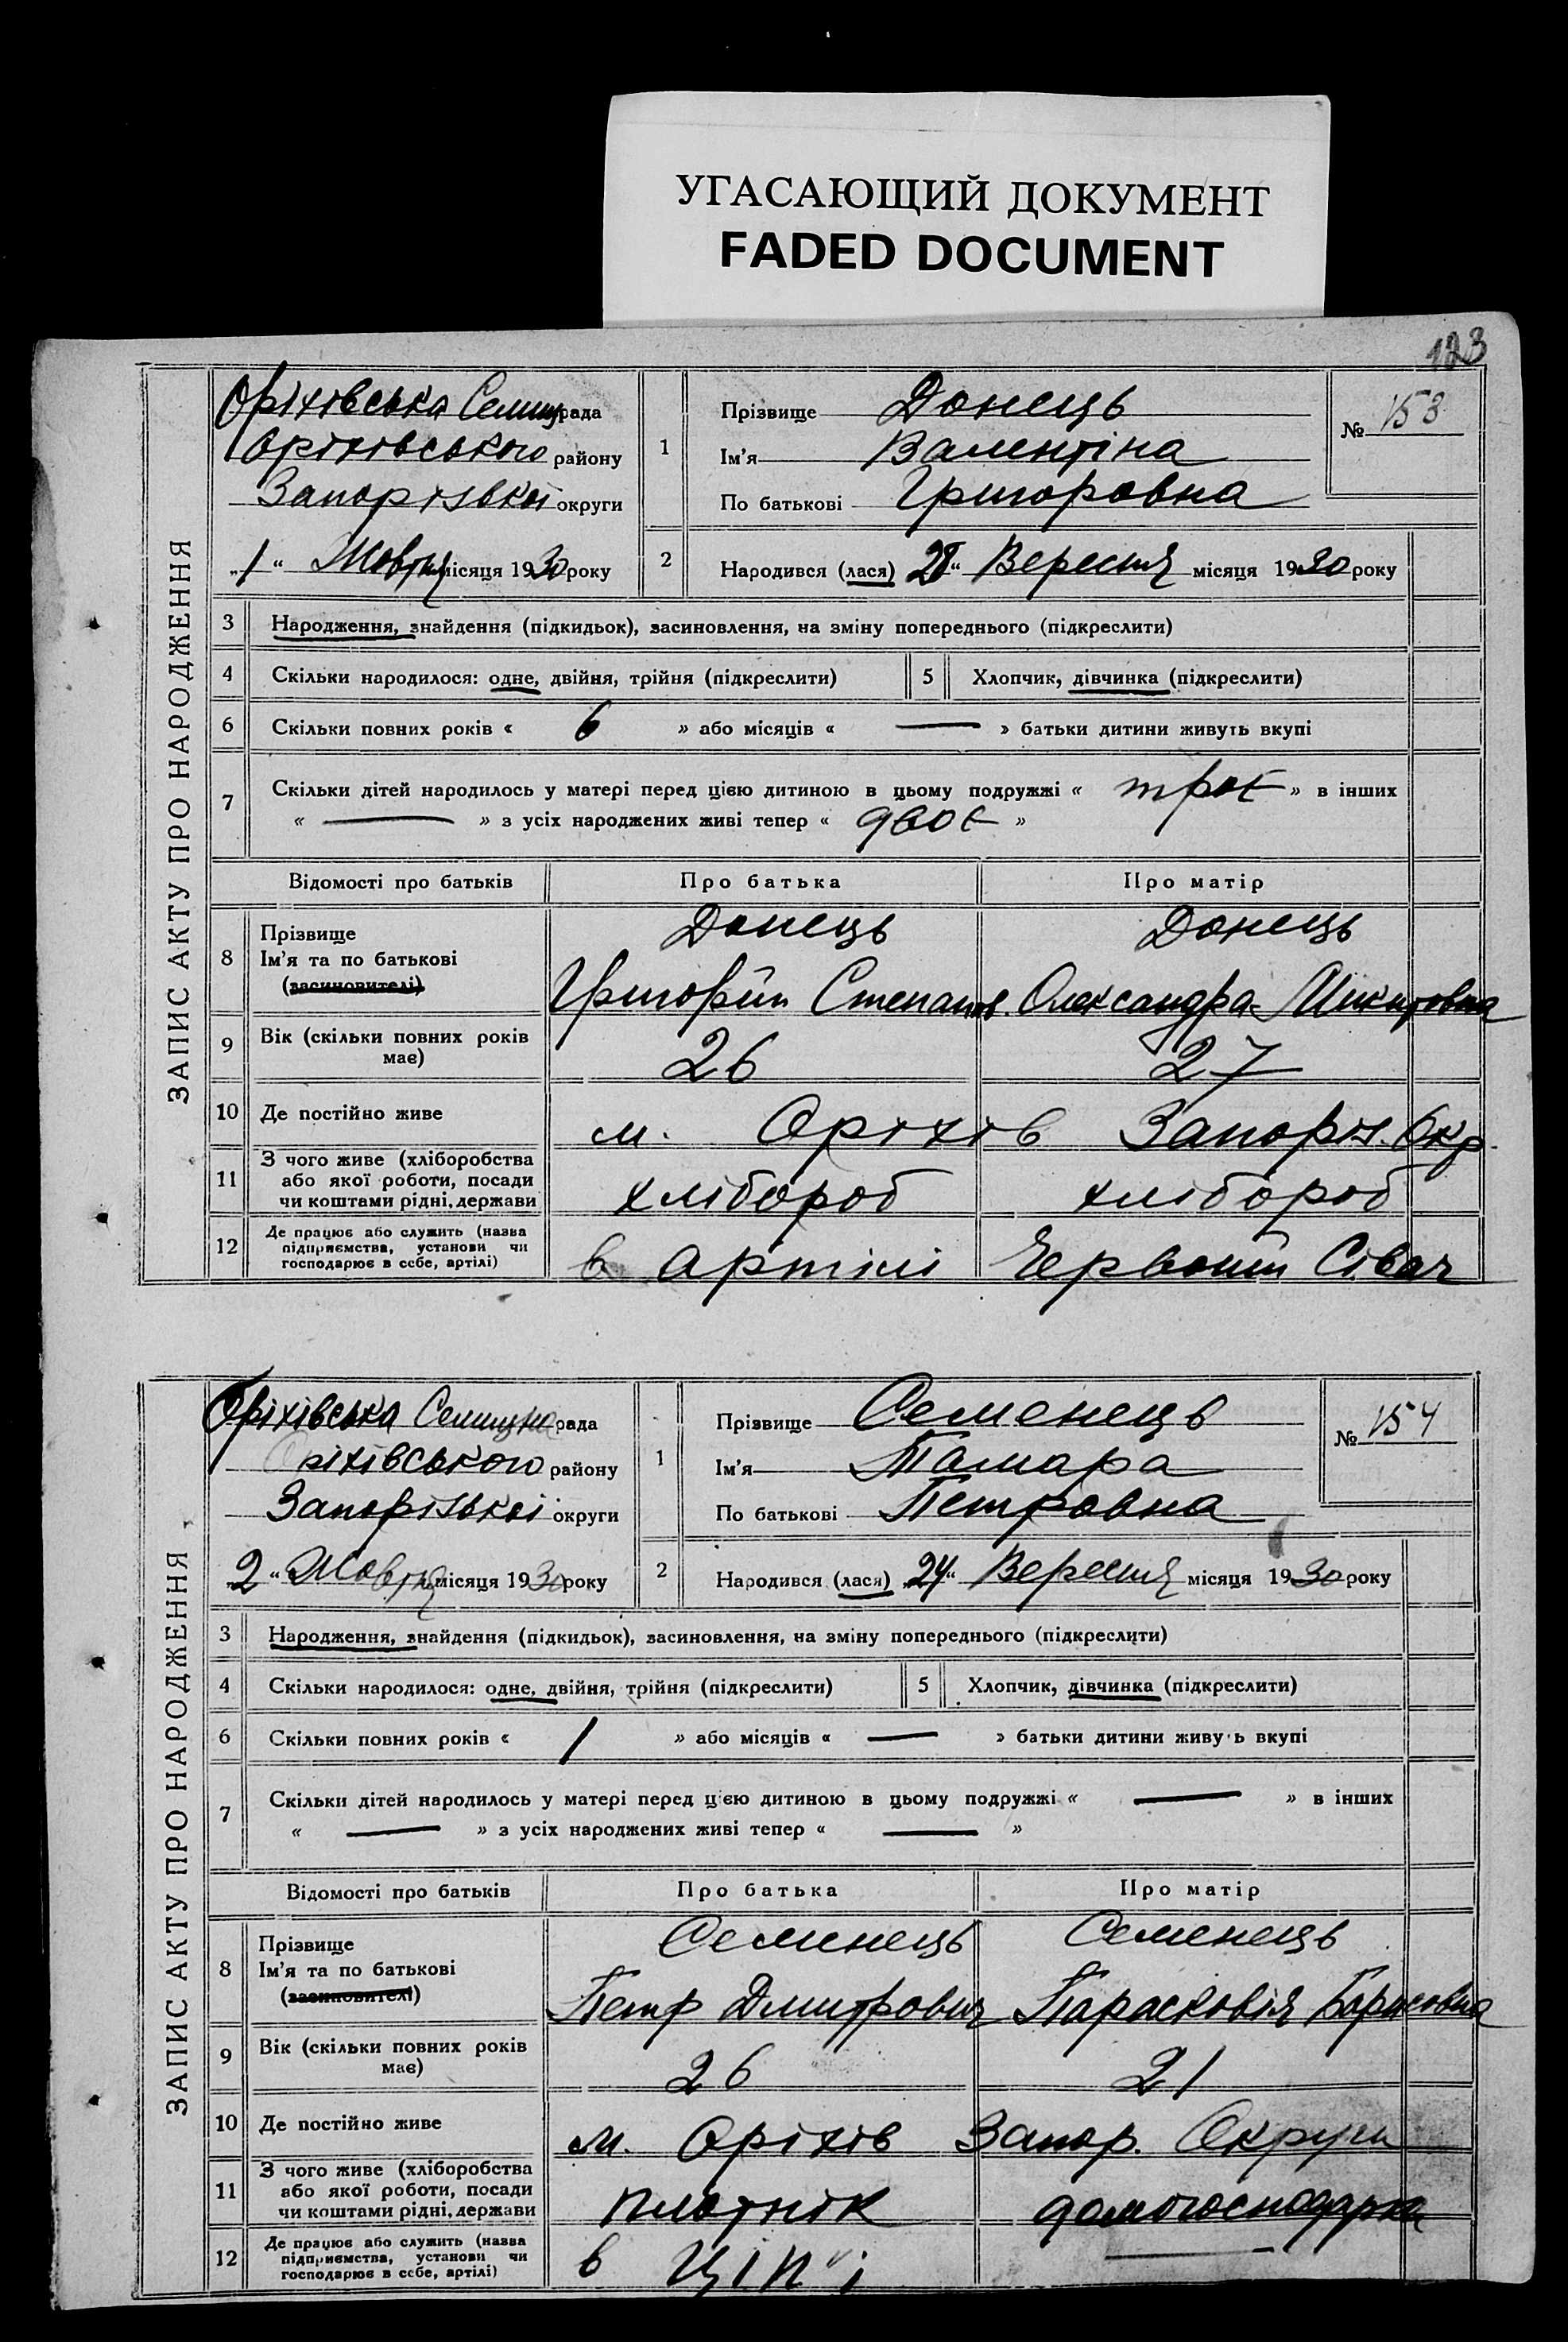 УГАСАЮЩИЙ ДОКУМЕНТ
FADED DOCUMENT
123
ЗАПИС АКТУ ПРО НАРОДЖЕННЯ
Оріхівська Селищ рада
Оріхівського району
Запорізької округи
„1“ Жовтня місяця 1930 року
1
Прізвище Донець
Ім'я Валентіна
По батькові Григоровна
№ 153
2
Народився (лася) „28“ Вересня місяця 1930 року
3 Народження, знайдення (підкидьок), засиновлення, на зміну попереднього (підкреслити)
4 Скільки народилося: одне, двійня, трійня (підкреслити) 5 Хлопчик, дівчинка (підкреслити)
6 Скільки повних років « 6 » або місяців « — » батьки дитини живуть вкупі
7 Скільки дітей народилось у матері перед цією дитиною в цьому подружжі « троє » в інших
« — » з усіх народжених живі тепер « двоє »
Відомості про батьків Про батька Про матір
8 Прізвище
Ім'я та по батькові
(засиновителі)
Донець Донець
Григорій Степанов. Олександра Микитовна
9 Вік (скільки повних років має) 26 27
10 Де постійно живе м. Оріхів Запоріз. Окр.
11 З чого живе (хліборобства
або якої роботи, посади
чи коштами рідні, держави
хлібороб хлібороб
12 Де працює або служить (назва
підприємства, установи чи
господарює в себе, артілі)
в артілі Червоний Сівач
ЗАПИС АКТУ ПРО НАРОДЖЕННЯ
Оріхівська Селищна рада
Оріхівського району
Запорізької округи
„2“ Жовтня місяця 1930 року
1
Прізвище Семенець
Ім'я Тамара
По батькові Петровна
№ 154
2
Народився (лася) „24“ Вересня місяця 1930 року
3 Народження, знайдення (підкидьок), засиновлення, на зміну попереднього (підкреслити)
4 Скільки народилося: одне, двійня, трійня (підкреслити) 5 Хлопчик, дівчинка (підкреслити)
6 Скільки повних років « 1 » або місяців « — » батьки дитини живуть вкупі
7 Скільки дітей народилось у матері перед цією дитиною в цьому подружжі « — » в інших
« — » з усіх народжених живі тепер « — »
Відомості про батьків Про батька Про матір
8 Прізвище
Ім'я та по батькові
(засиновителі)
Семенець Семенець
Петр Дмитрович Парасковія Борисовна
9 Вік (скільки повних років має) 26 21
10 Де постійно живе м. Оріхів Запор. Округи
11 З чого живе (хліборобства
або якої роботи, посади
чи коштами рідні, держави
плотнік домогосподарка
12 Де працює або служить (назва
підприємства, установи чи
господарює в себе, артілі)
в